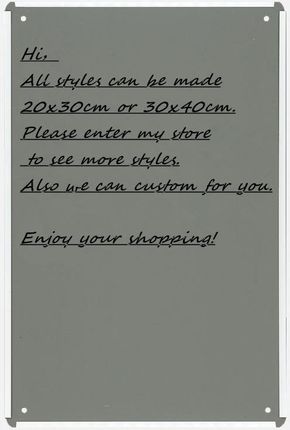 Hi,
All styles can be made
20x30cm or 30x40cm.
Please enter my store
to see more styles.
Also we can custom for you.
Enjoy your shopping!